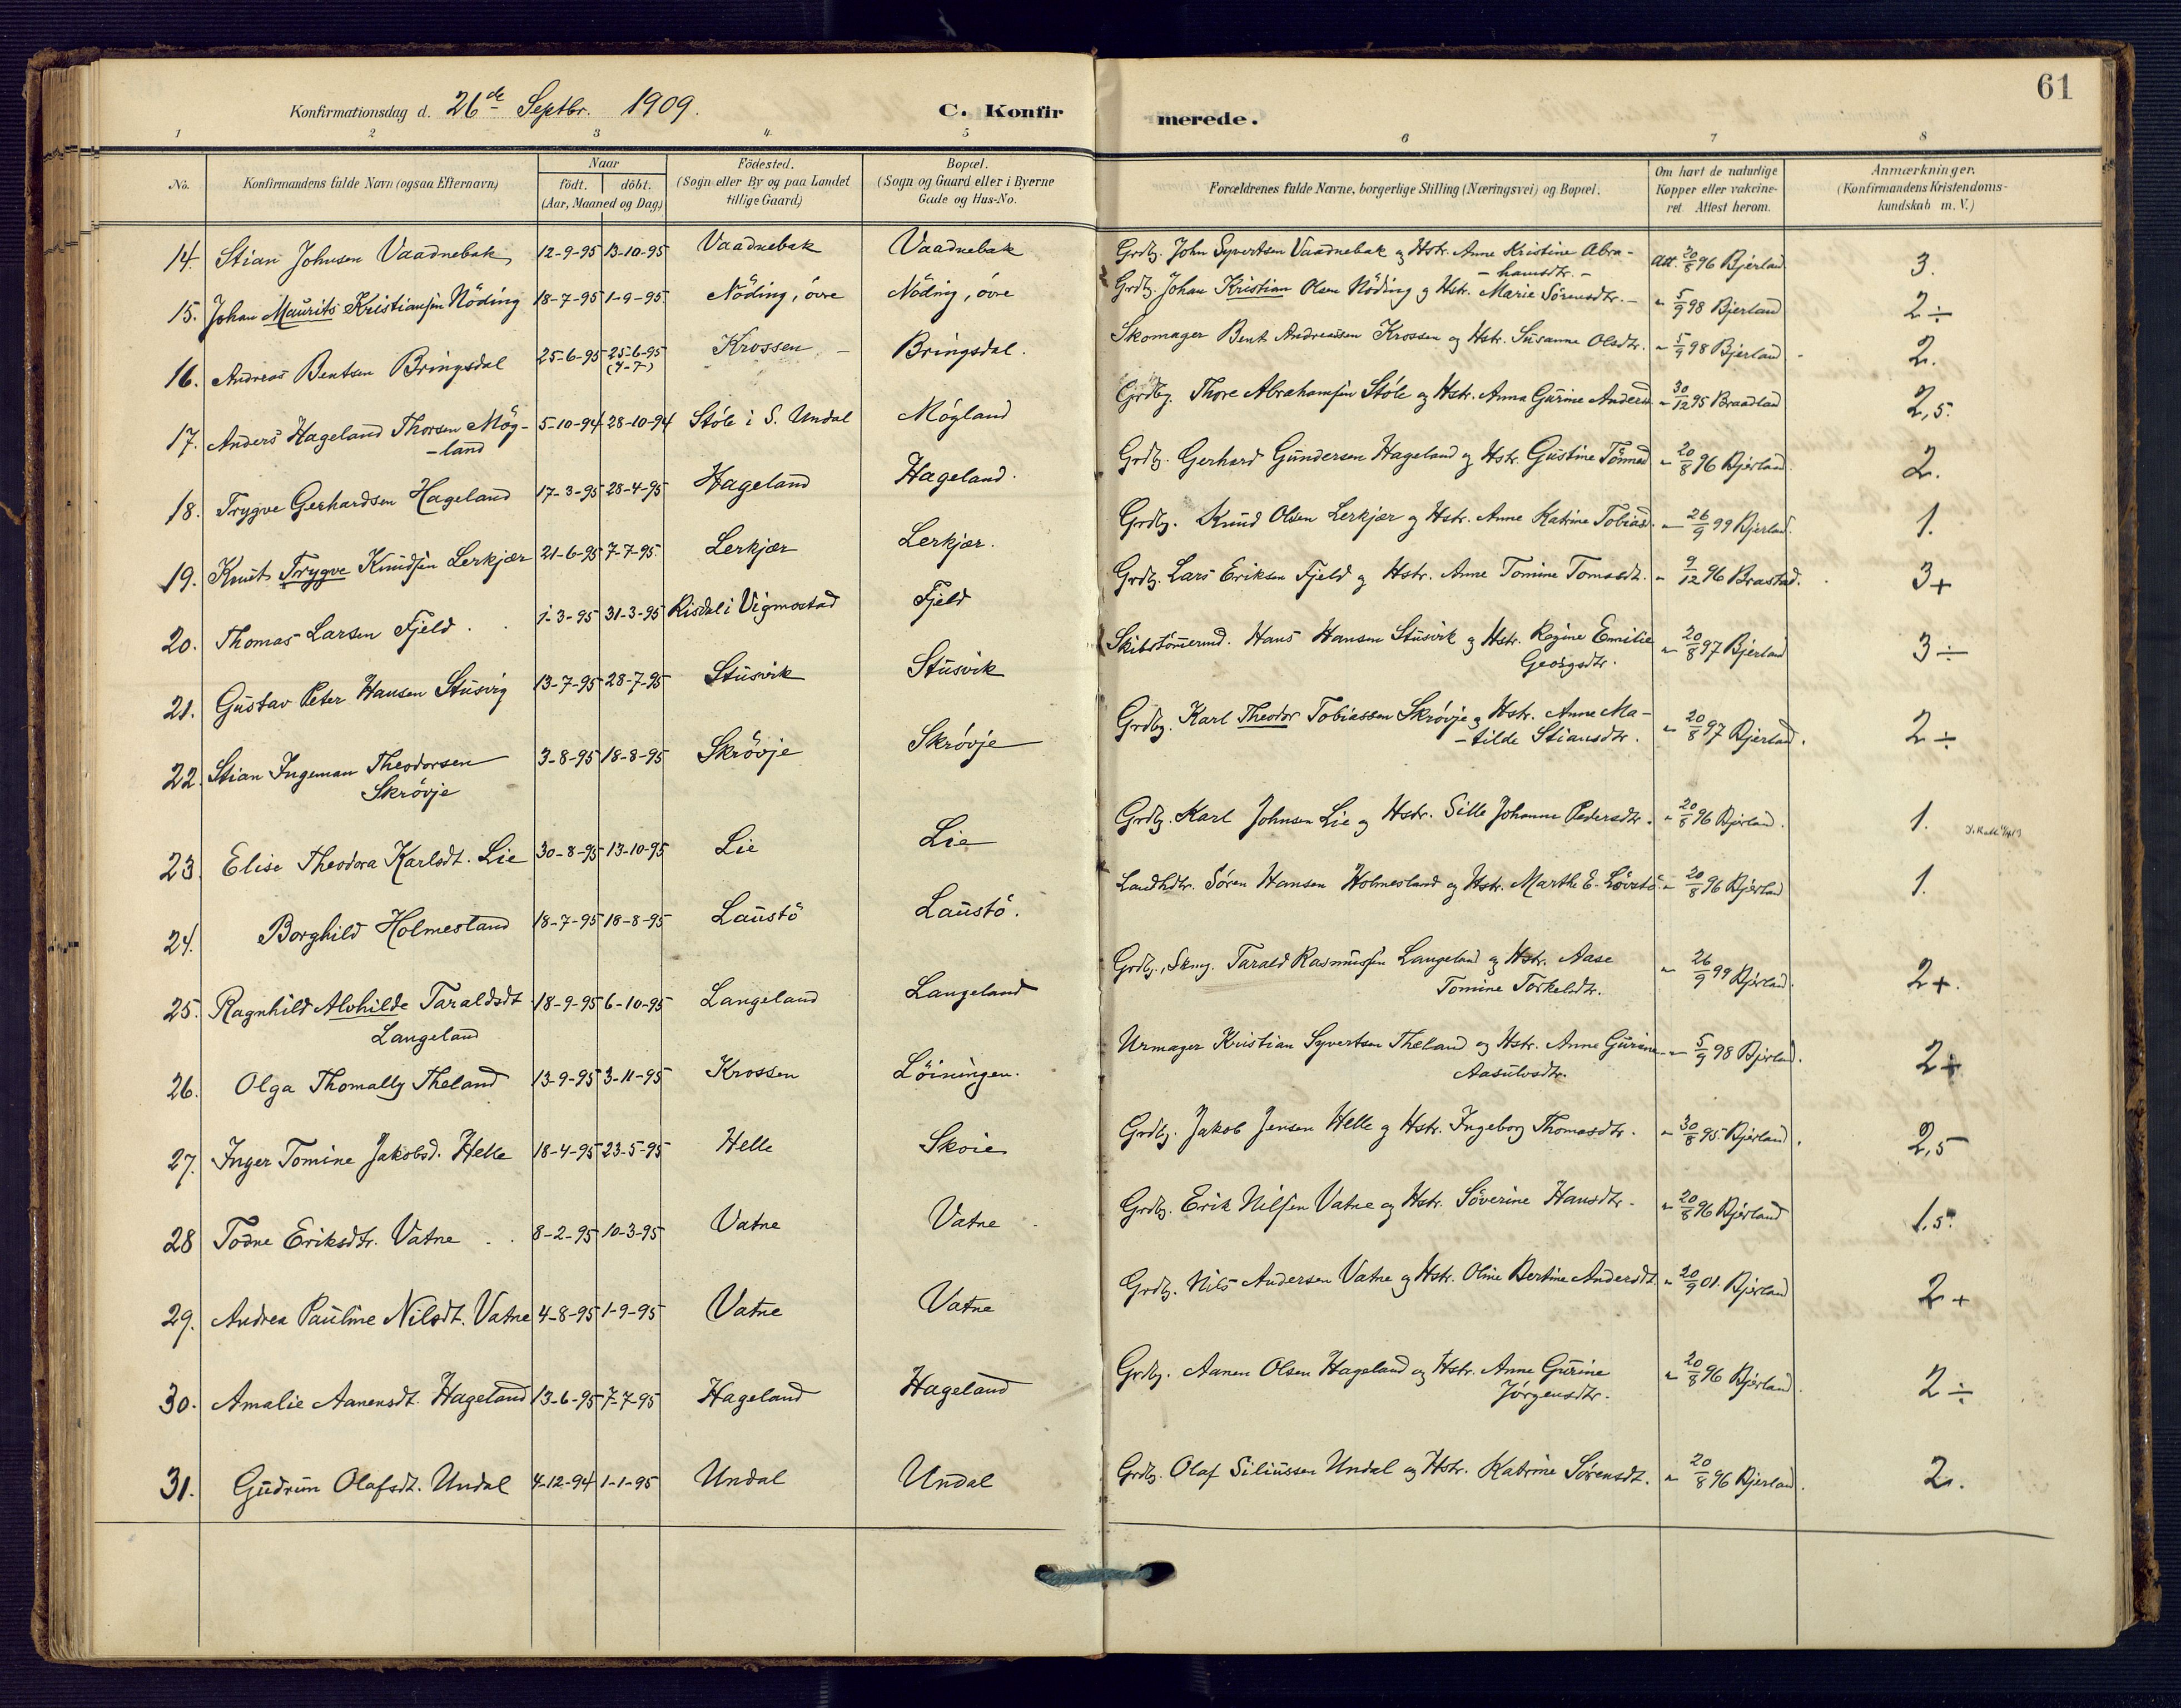 61
Konfirmationsdag d. 26de Septbr. 1909. C. Konfir merede.
1 2 3 4. 5 6 7 8
No. Konfirmandens fulde Navn (ogsaa Efternavn) Naar Födested. Bopæl. Forældrenes fulde Navne, borgerlige Stilling (Næringsvei) og Bopæl. Om havt de naturlige Anmærkninger.
födt. döbt. (Sogn eller By og paa Landet (Sogn og Gaard eller i Byerne Kopper eller vakcine- (Konfirmandens Kristendoms-
(Aar, Maaned og Dag) tillige Gaard) Gade og Hus-No. ret. Attest herom. kundskab m. V.)
14. Stian Johnsen Vaadnebak 12-9-95 13-10-95 Vaadnebak Vaadnebak Grdbg. John Syvertsen Vaadnebak og Hstr. Anne Kristine Abra- Att. 20/8 96 Bjerland 3.
- hamsdtr. -
15. Johan Maurits Kristiansen Nöding 18-7-95 1-9-95. Nöding, övre Nöding, övre Grdbg. Johan Kristian Olsen Nöding og Hstr. Marie Sörensdtr. - " 5/9 98 Bjerland 2 ÷
16. Andreas Bentsen Bringsdal 25-6-95 25-6-95 Krossen - Bringsdal. Skomager Bent Andreassen Krossen og Hstr. Susanne Olsdtr. " 5/9 98 Bjerland 2.
(7-7)
17. Anders Hageland Thorsen Mög- 5-10-94 28-10-94 Störe i S. Undal Mögland Grdbg. Thore Abrahamsen Störe og Hstr. Anna Gurine Andersd. " 30/12 95 Braadland 2,5.
-land
18. Trygve Gerhardsen Hageland 17-3-95 28-4-95 Hageland Hageland. Grdbg. Gerhard Gundersen Hageland og Hstr. Gustine Tönnesd. " 20/8 96 Bjerland. 2.
19. Knut Trygve Knudsen Lerkjær 21-6-95 7-7-95. Lerkjær Lerkjær. Grdbg. Knud Olsen Lerkjær og Hstr. Anne Katrine Tobiasd. " 26/9 99 Bjerland. 1.
20. Thomas Larsen Fjeld . . 1-3-95 31-3-95 Risdal i Vigmostad Fjeld Grdbg. Lars Eriksen Fjeld og Hstr. Anne Tomine Tomasdt. " 9/12 96 Brastad. 3+
21. Gustav Peter Hansen Stusvig 13-7-95 28-7-95 Stusvik Stusvik Skibstömermd. Hans Hansen Stusvik og Hstr. Regine Emilie " 20/8 97 Bjerland 3 ÷
Georgsdtr.
22. Stian Ingeman Theodorsen 3-8-95 18-8-95 Skrövje Skrövje Grdbg. Karl Theodor Tobiassen Skrövje og Hstr. Anne Ma- " 20/8 97 Bjerland. 2 ÷
Skrövje -tilde Stiansdtr.
23. Elise Theodora Karlsdt. Lie 30-8-95 13-10-95 Lie Lie Grdbg. Karl Johnsen Lie og Hstr. Sille Johanne Pedersdtr. " 20/8 96 Bjerland. 1.
24. Borghild Holmesland 18-7-95 18-8-95 Laustö Laustö. Landhdlr. Sören Hansen Holmesland og Hstr. Marthe E. Lövstö " 20/8 96 Bjerland 1.
25. Ragnhild Alvhilde Taraldsdt. 18-9-95 6-10-95 Langeland Langeland Grdbg., Skmg. Tarald Rasmussen Langeland og Hstr. Aase " 26/9 99 Bjerland. 2+.
Langeland Tomine Torkelsdtr.
26. Olga Thomally Theland 13-9-95 3-11-95 Krossen Löiningen. Urmager Kristian Syvertsen Theland og Hstr. Anne Gurine " 5/9 98 Bjerland. 2+
Aasulvsdtr.
27. Inger Tomine Jakobsd. Helle 18-4-95 23-5-95 Helle Skoie Grdbg. Jakob Jensen Helle og Hstr. Ingeborg Thomasdtr. " 30/8 95. Bjerland. 2,5
28 Todne Eriksdtr. Vatne . . 8-2-95 10-3-95 Vatne Vatne Grdbg. Erik Nilsen Vatne og Hstr. Söverine Hansdtr. " 20/8 96 Bjerland 1,5.
29. Andrea Pauline Nilsdt. Vatne 4-8-95 1-9-95 Vatne Vatne Grdbg. Nils Andersen Vatne og Hstr. Oline Bertine Andersdt. " 20/9 01. Bjerland 2+
30. Amalie Aanensdt. Hageland 13-6-95 7-7-95 Hageland Hageland Grdbg. Aanen Olsen Hageland og Hstr. Anne Gurine " 20/8 96 Bjerland. 2 ÷
Jörgensdtr.
31. Gudrun Olafsdt. Undal 4-12-94 1-1-95 Undal Undal Grdbg. Olaf Siliussen Undal og Hstr. Katrine Sörensdt. " 20/8 96 Bjerland. 2.